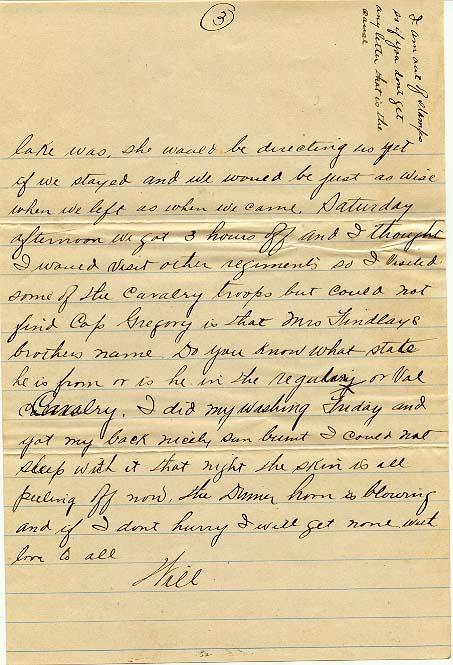 3
I am out of stamps
so if you dont get
any letter that is the
cause
lake was, she would be directing us yet
if we stayed and we would be just as wise
when we left as when we came. Saturday
afternoon we got 3 hours off and I thought
I would visit other regiments so I visited
some of the Cavalry troops but could not
find Cap Gregory is that Mrs Findlays
brothers name. Do you know what state
he is from or is he in the regulars or Val
Cavalry. I did my washing Friday and
got my back nicely sun burnt I could not
sleep with it that night the skin is all
peeling off now. the Dinner horn is blowing
and if I dont hurry I will get none with
love to all
Will